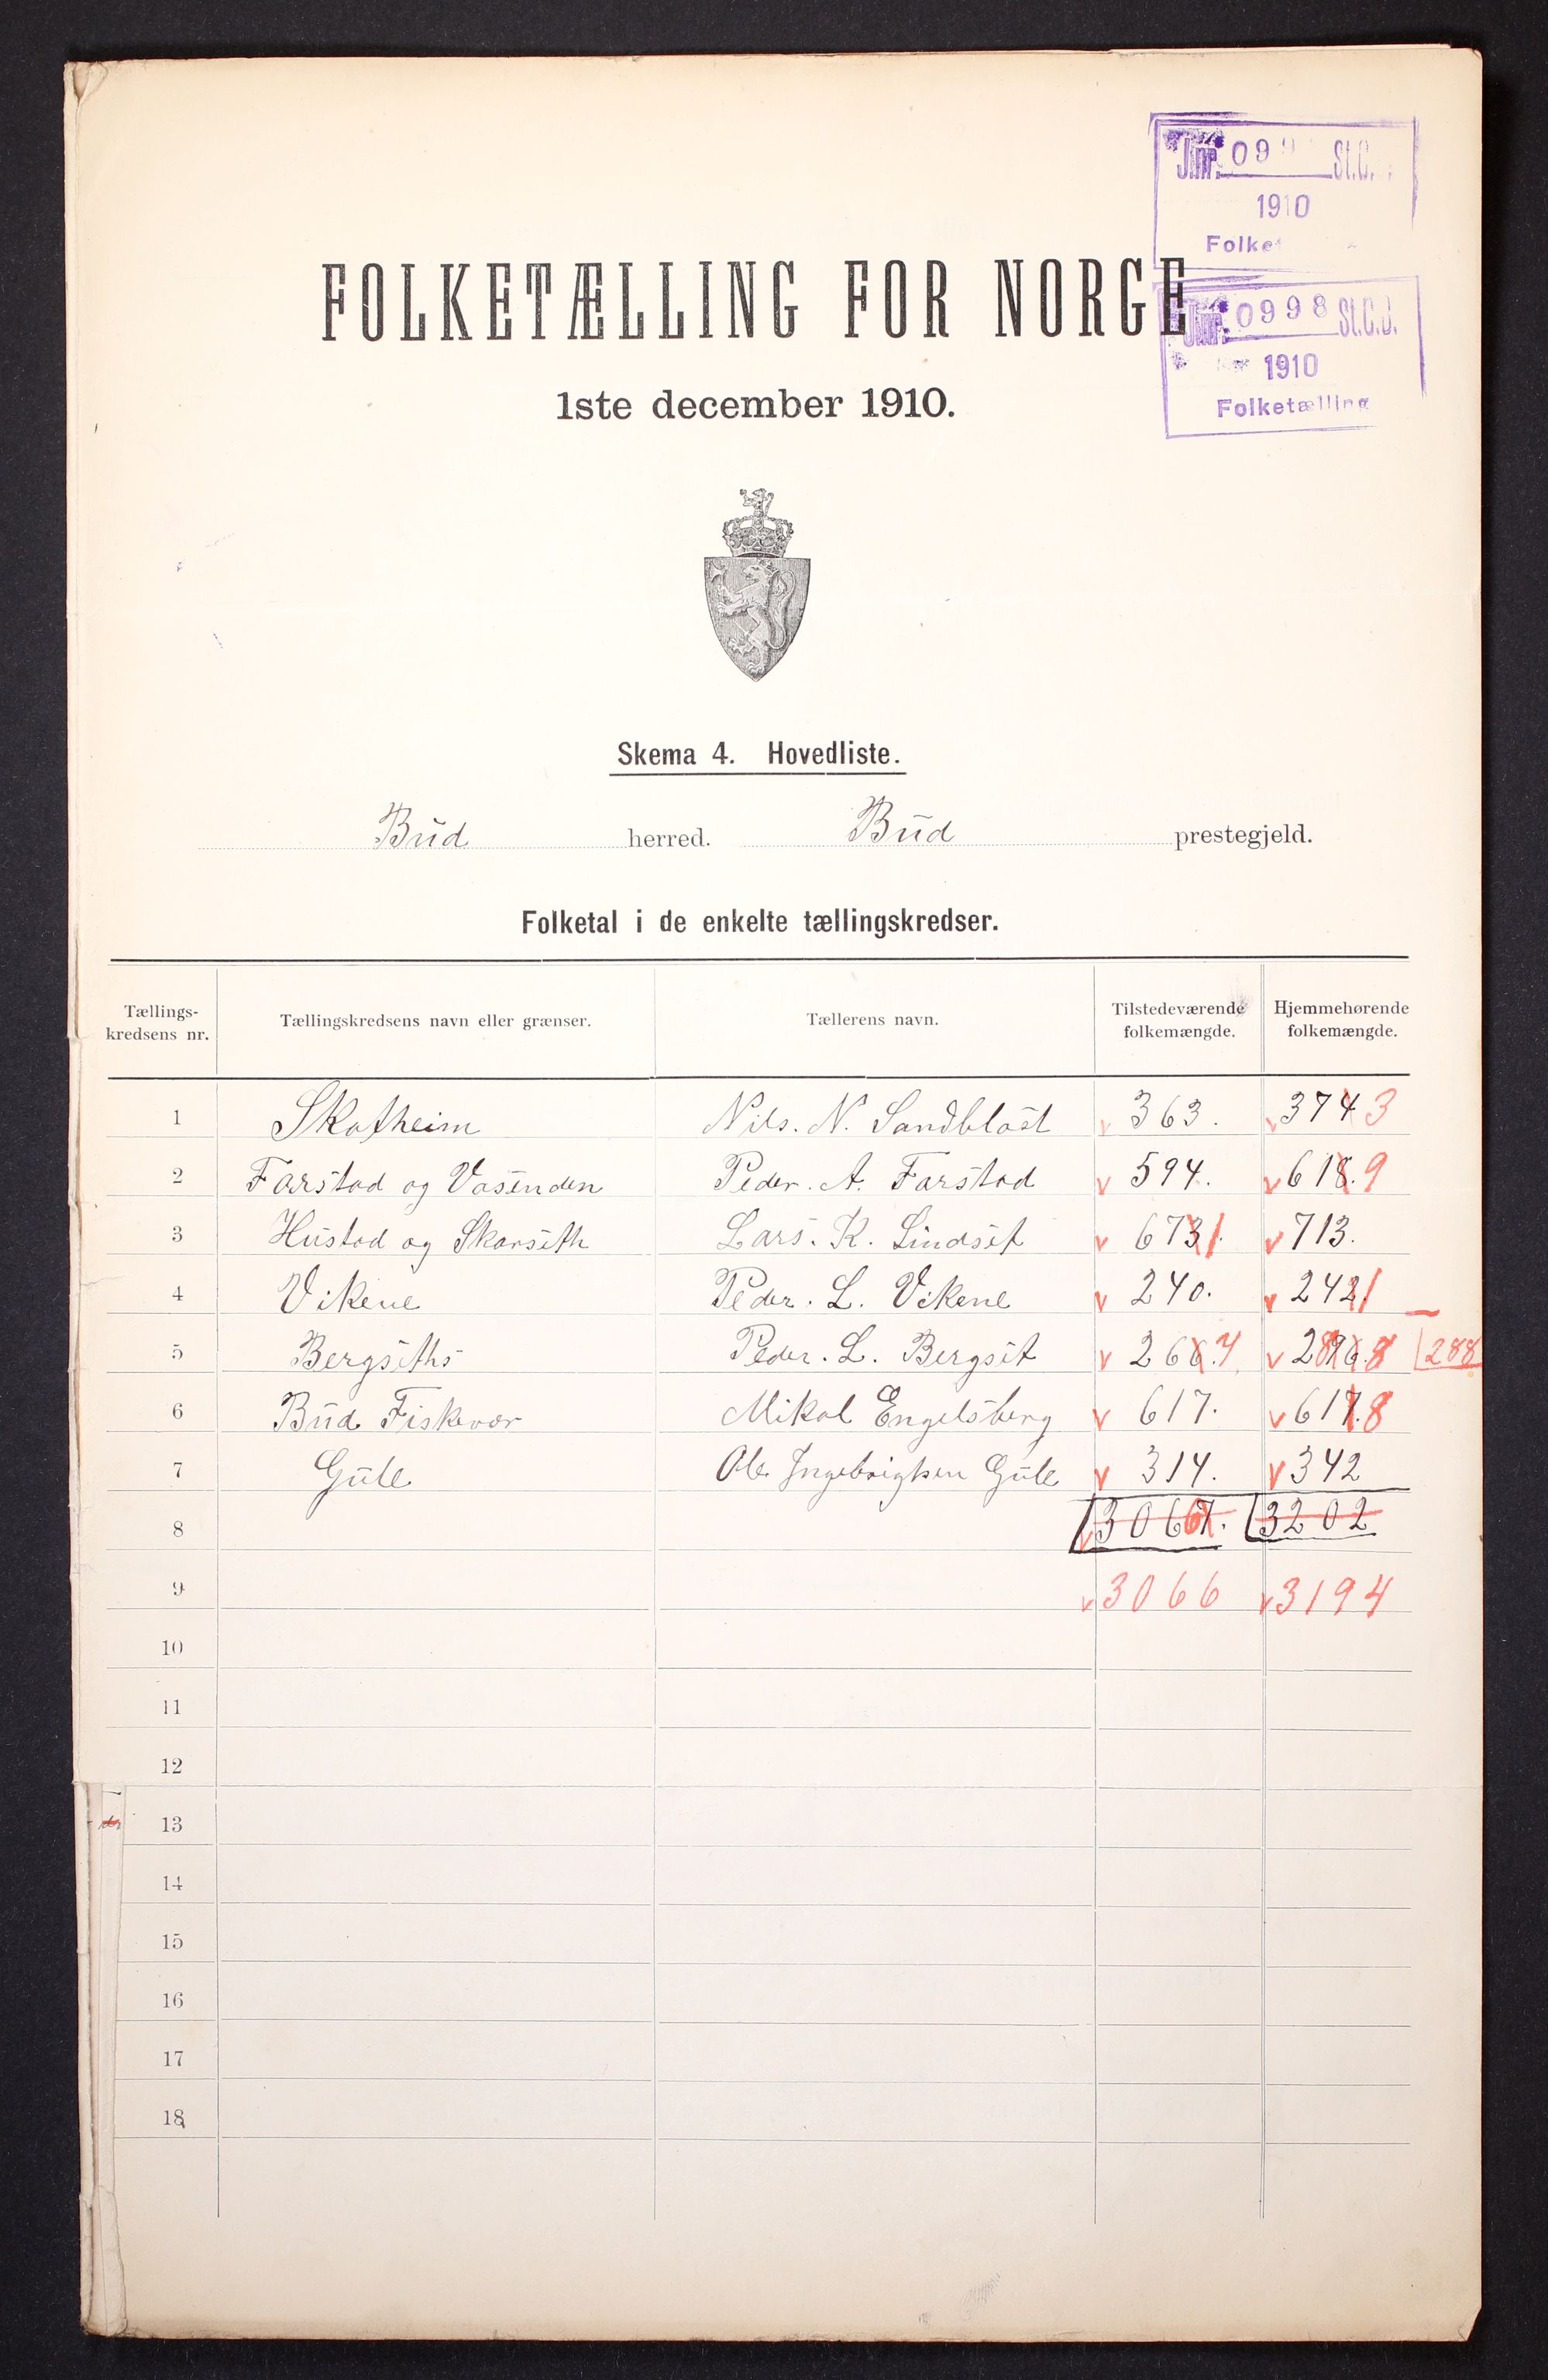 Jnr. 099 St.C.
1910
Folket
FOLKETÆLLING FOR NORGE
Jnr. 0998 St.C.B.
1910
Folketælling
1ste december 1910.
Skema 4. Hovedliste.
Bud herred. Bud prestegjeld.
Folketal i de enkelte tællingskredser.
Tællings-kredsens nr. Tællingskredsens navn eller grænser. Tællerens navn. Tilstedeværende folkemængde. Hjemmehørende folkemængde.
1 Skotheim Nils. N. Sandblåst v 363. v 374 3
2 Farstad og Vasenden Peder. A. Farstad v 594. v 618. 9
3 Hustad og Skarseth Lars. K. Lindset v 673 1. v 713.
4 Vikene Peder. L. Vikene v 240. v 242. 1
5 Bergseths Peder. L. Bergset v 266. 7 v 296. 8 8 288
6 Bud Fiskevær Mikal Engelsberg v 617. v 617. 8
7 Gule Ole Ingebrigtsen Gule v 314. v 342
8 v 3067. 6 3202
9 v 3066 v 3194
10
11
12
13
14
15
16
17
18